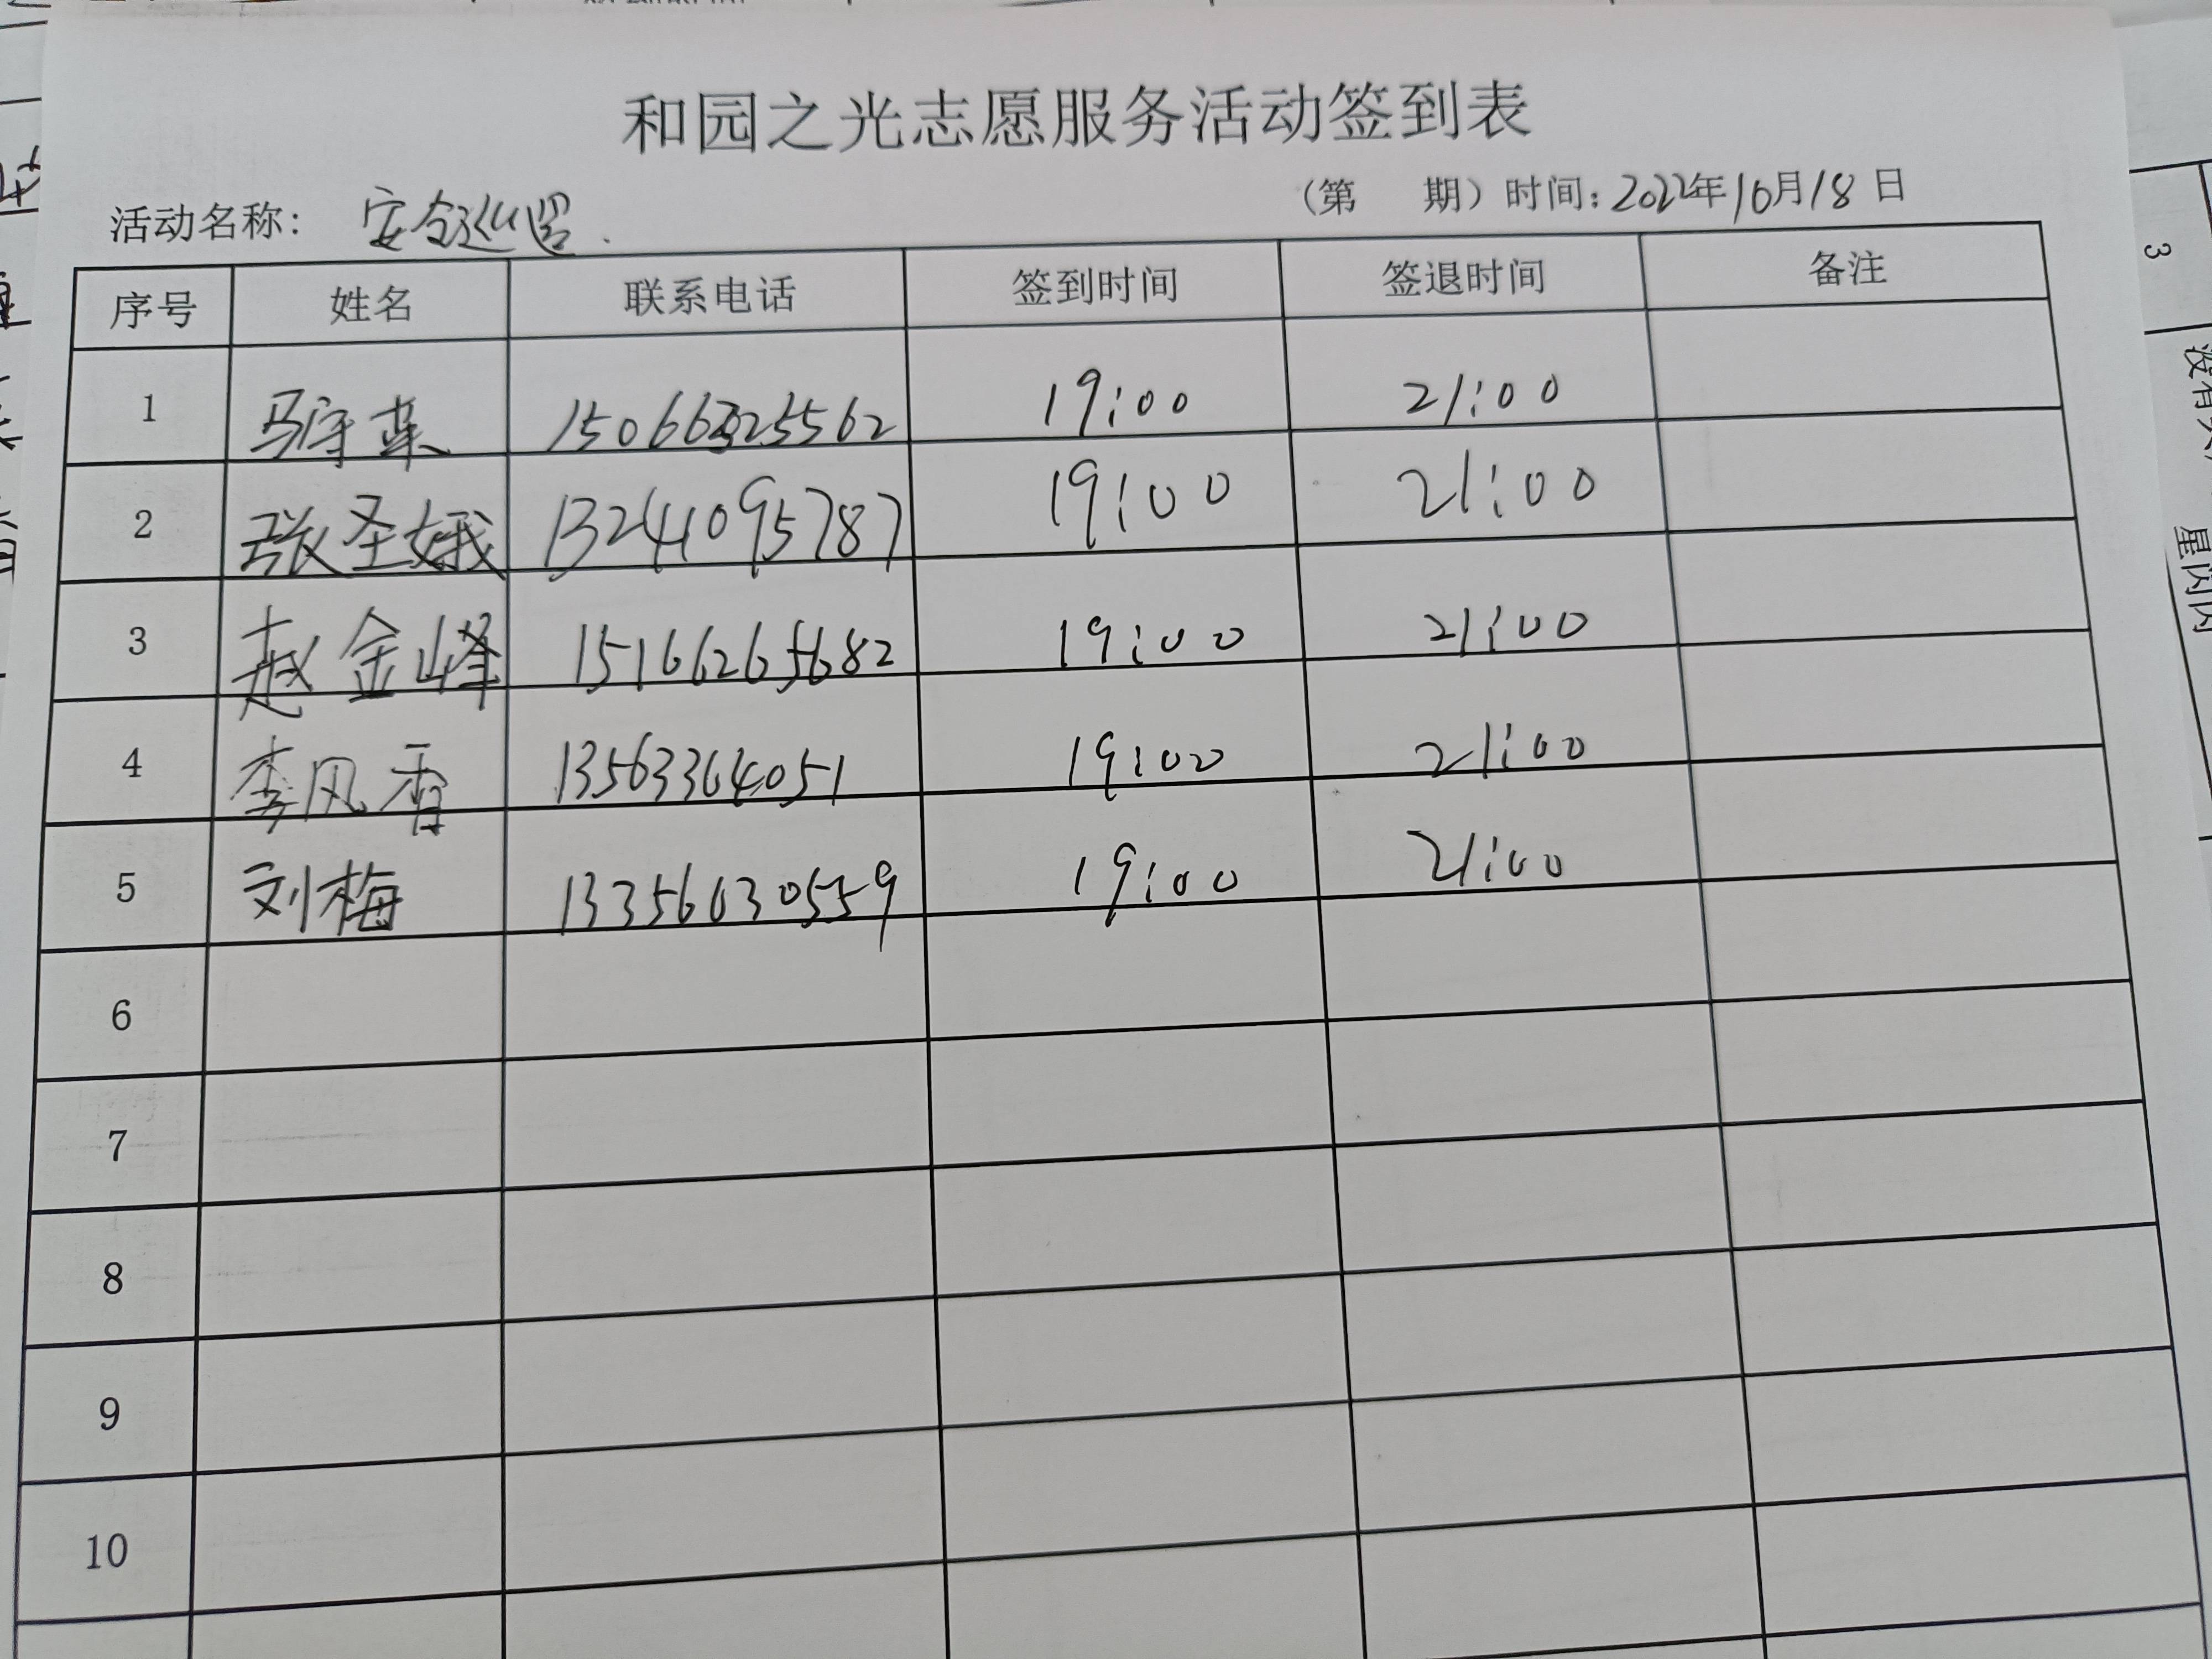 和园之光志愿服务活动签到表
活动名称: 安全巡逻. (第 期) 时间: 2022年10月18日
序号 姓名 联系电话 签到时间 签退时间 备注
1 马守荣 19:00 21:00
2 张圣娥 13241095787 19:00 21:00
3 赵金峰 15166265682 19:00 21:00
4 李风香 13563364051 19:00 21:00
5 刘梅 13356630559 19:00 21:00
6
7
8
9
10
3
没有
星闪闪